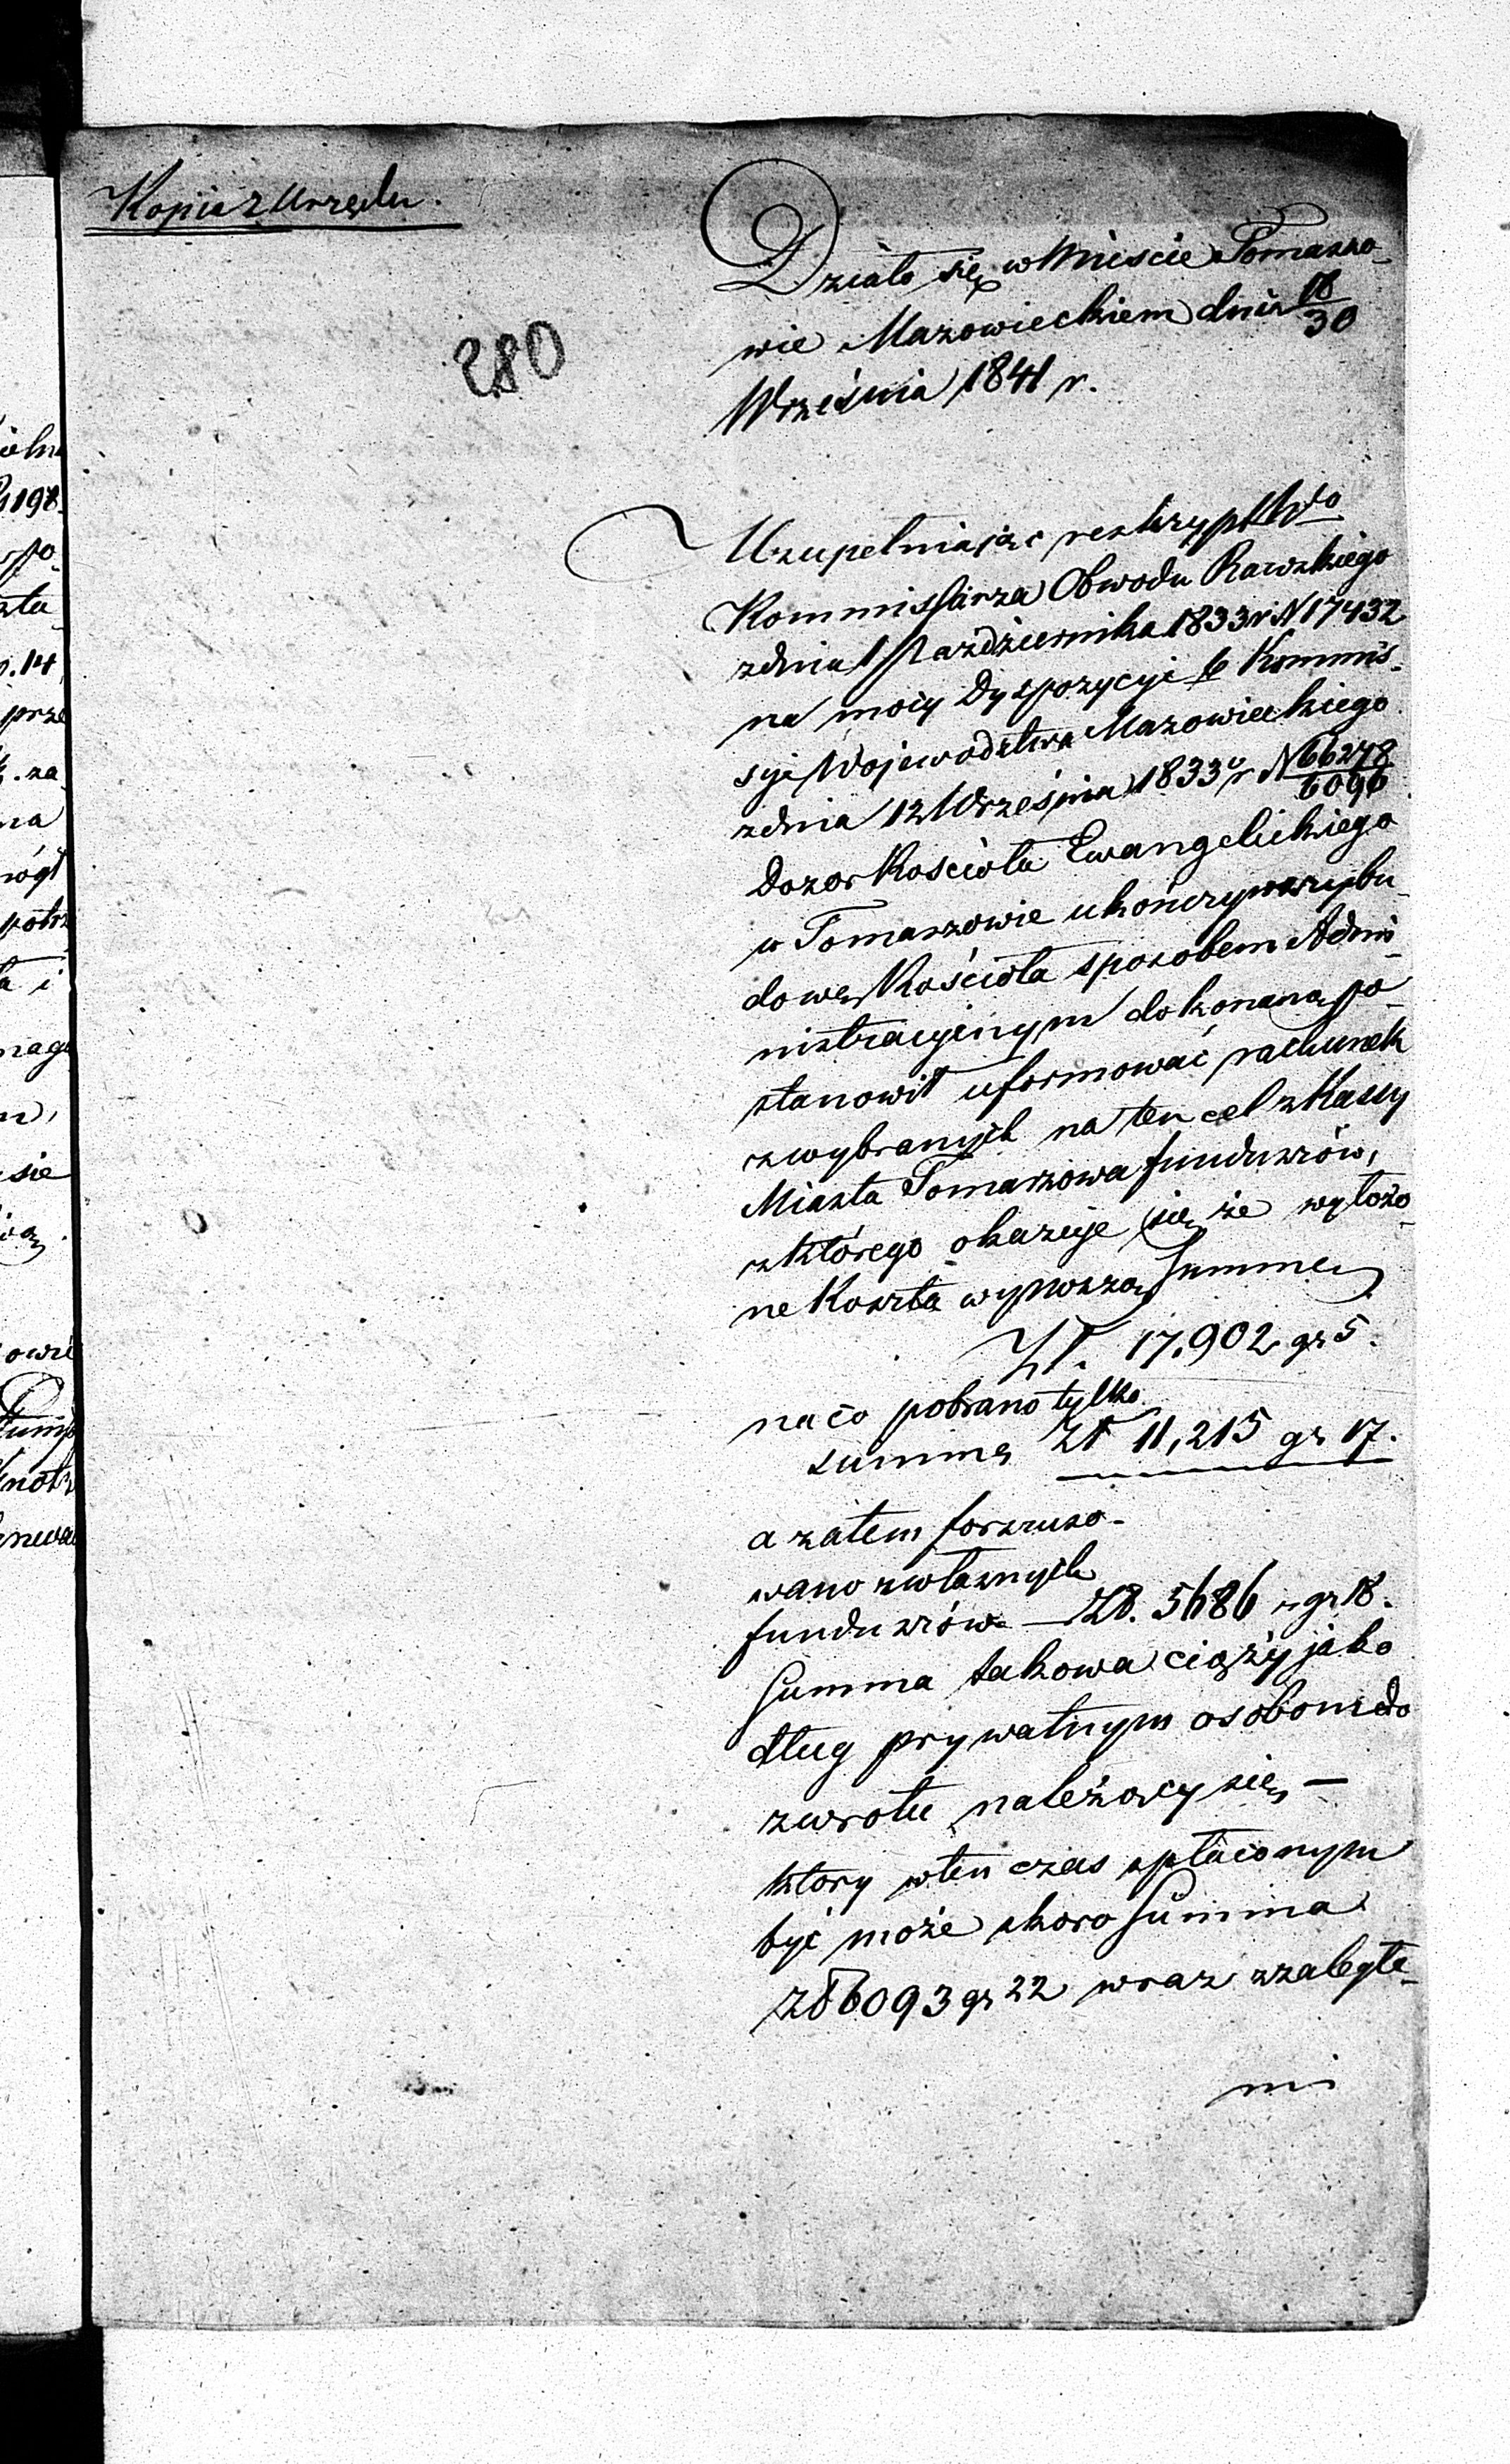 Kopia z Urzędu.
280
Działo się w Mieście Tomaszo-
wie Mazowieckiem dnia 18/30
Września 1841 r.
Uzupełniając reskrypt Wo
Kommissarza Obwodu Rawskiego
z dnia 1 Października 1833 r N 17432
na mocy Dyspozycyi b Kommis-
syi Województwa Mazowieckiego
z dnia 12 Września 1833 r N 66278/6096
Dozor Kościoła Ewangelickiego
w Tomaszowie ukończywszy bu-
dowę Kościoła sposobem Admi-
nistracyinym dokonaną po-
stanowił uformować rachunek
z wybranych na ten cel z Kassy
Miasta Tomaszowa funduszów,
z którego okazuje się że wyłożo-
ne Koszta wynoszą Summę
Zł. 17,902 gr 5.
na co pobrano tylko
summę Zł 11,215 gr 17.
a zatem forszuso-
wano z własnych
funduszów — Zł. 5686 gr 18.
Summa takowa ciąży jako
dług prywatnym osobom do
zwrotu należący się —
ktory w ten czas spłaconym
być może skoro Summa
Zł 6093 gr 22 wraz z zaległe-
mi
ieln
198.
po-
p. 14
prze
za
na
mógł
potrz
a i
nago
sie
owie